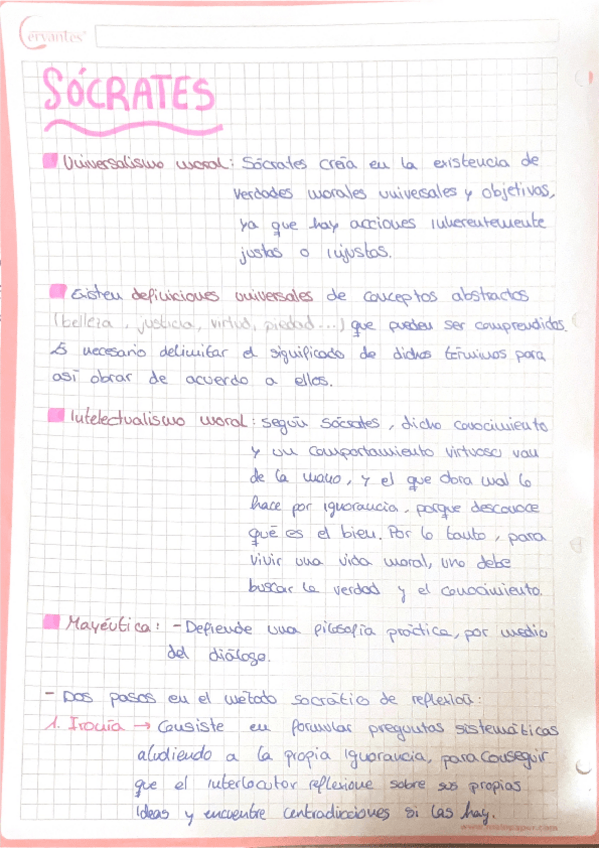 Cervantes
SÓCRATES
Universalismo moral: Sócrates creía en la existencia de
verdades morales universales y objetivas,
ya que hay acciones inherentemente
justas o injustas.
Existen definiciones universales de conceptos abstractos
(belleza, justicia, virtud, piedad...) que pueden ser comprendidos.
Es necesario delimitar el significado de dichos términos para
así obrar de acuerdo a ellos.
Intelectualismo moral: según Sócrates, dicho conocimiento
y un comportamiento virtuoso van
de la mano, y el que obra mal lo
hace por ignorancia, porque desconoce
qué es el bien. Por lo tanto, para
vivir una vida moral, uno debe
buscar la verdad y el conocimiento.
Mayéutica: - Defiende una filosofía práctica, por medio
del diálogo.
- Dos pasos en el método socrático de reflexión:
1. Ironía → Consiste en formular preguntas sistemáticas
aludiendo a la propia ignorancia, para conseguir
que el interlocutor reflexione sobre sus propias
ideas y encuentre contradicciones si las hay.